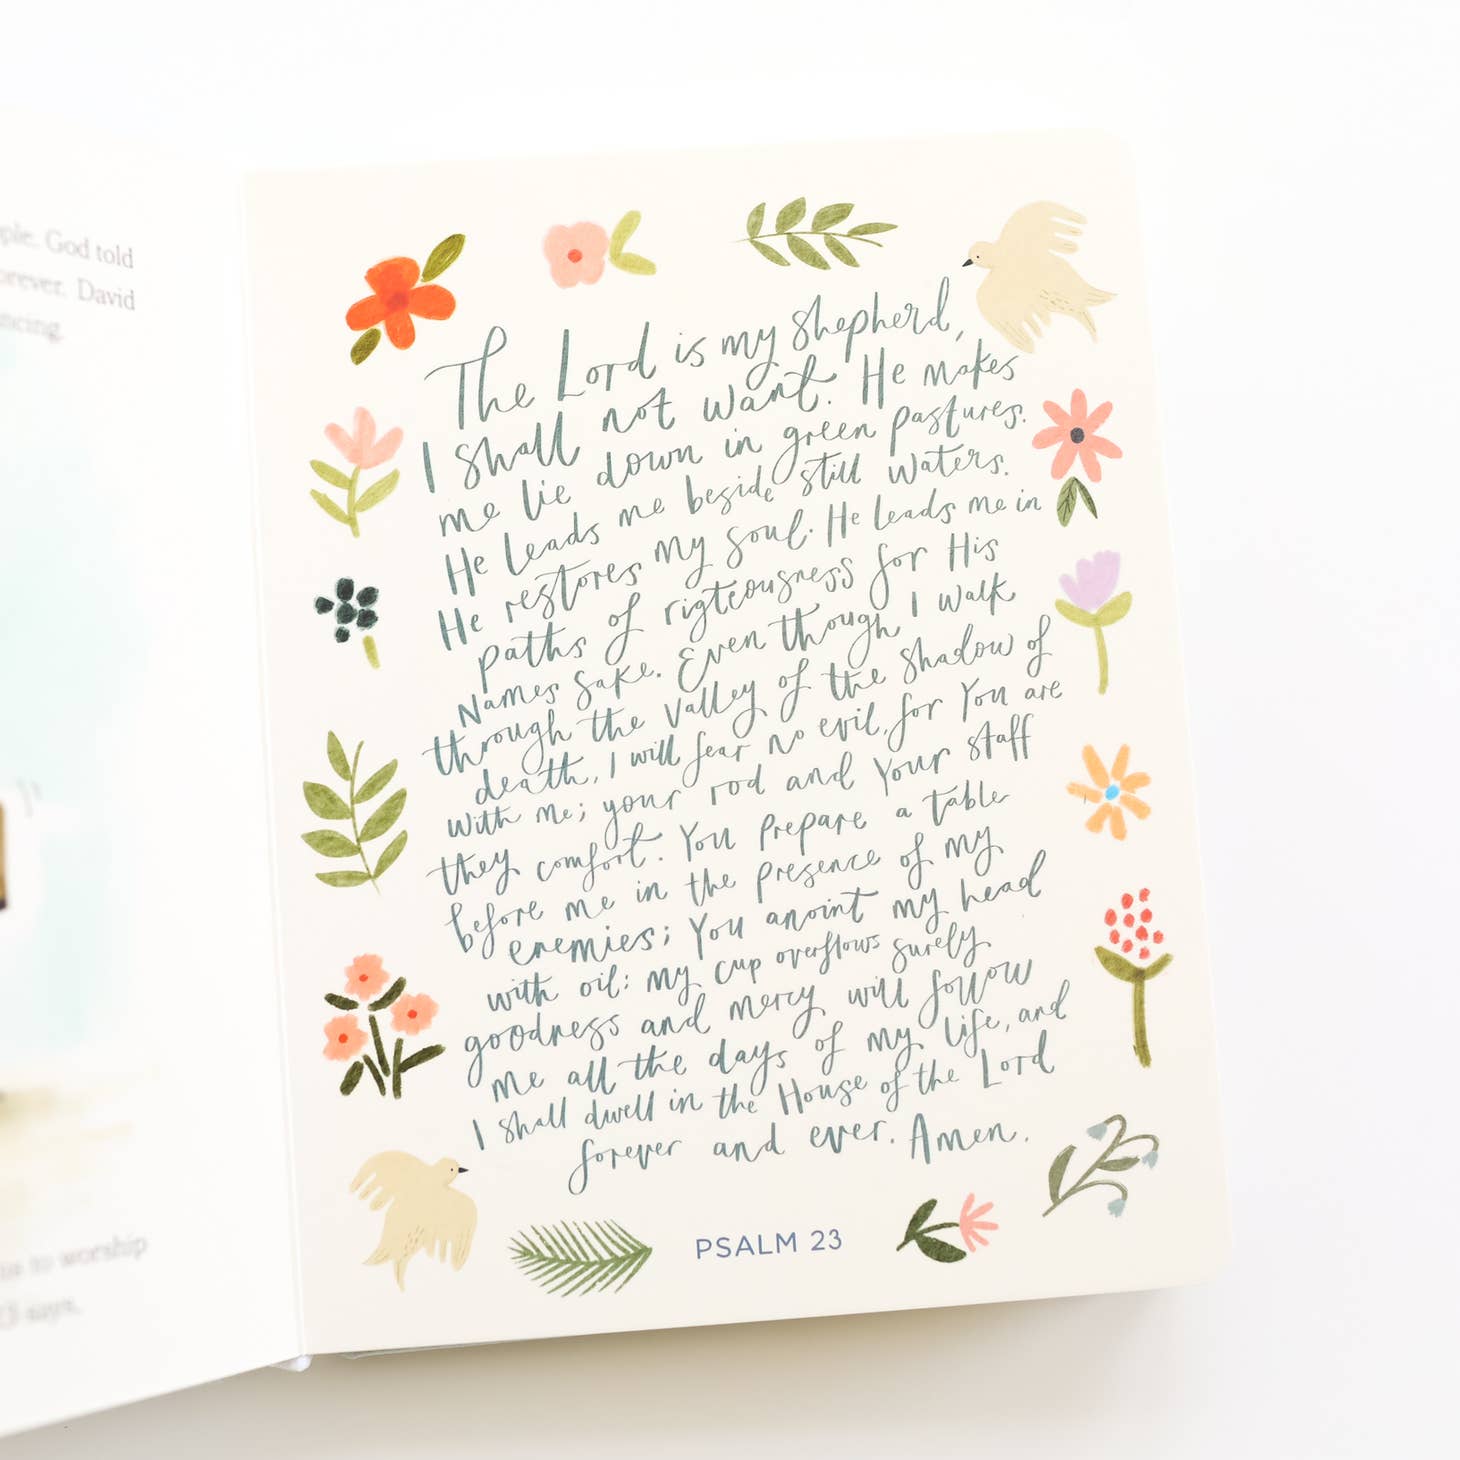 God told
David
to worship
says,
The Lord is my shepherd,
I shall not want. He makes
me lie down in green pastures.
He leads me beside still waters.
He restores my soul. He leads me in
paths of rigteousness for His
Names Sake. Even though I walk
through the valley of the shadow of
death, I will fear no evil, for You are
with me; your rod and Your staff
they comfort. You prepare a table
before me in the presence of my
enemies; You anoint my head
with oil; my cup overflows surely
goodness and mercy will follow
me all the days of my life, and
I shall dwell in the House of the Lord
forever and ever. Amen.
PSALM 23